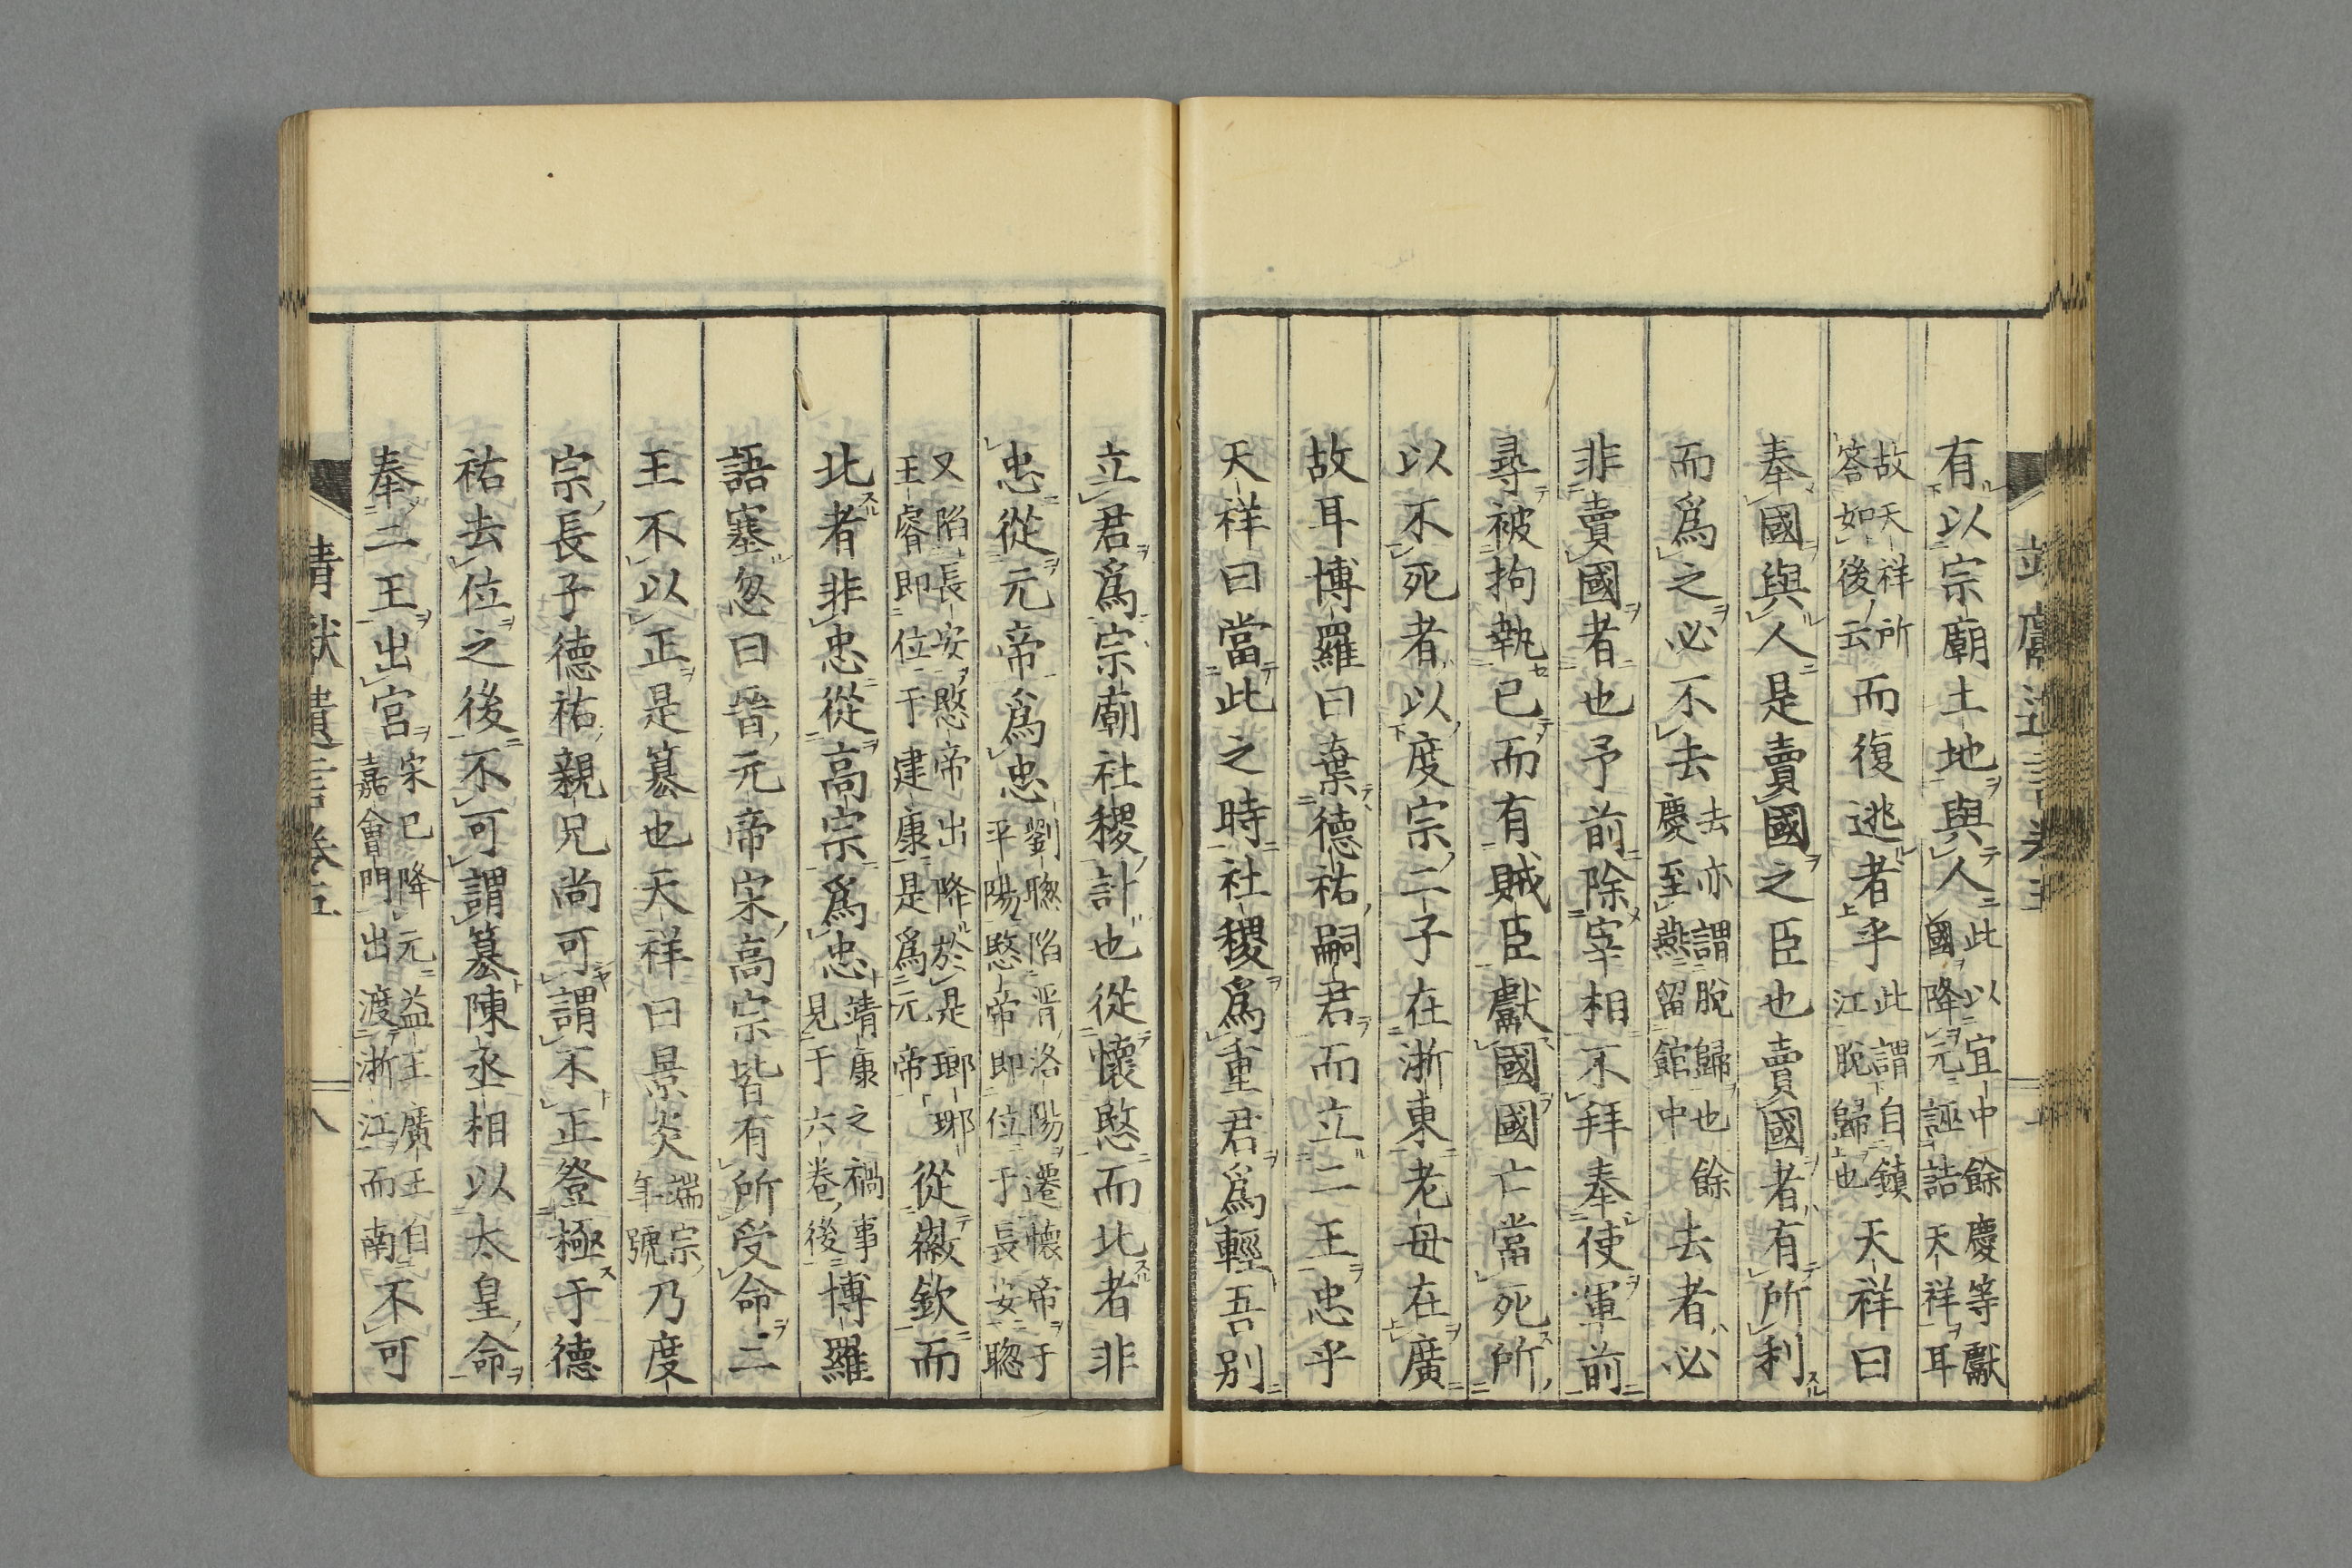 有以宗廟土地與人此以宜中餘慶等獻國降元誣詰天祥耳
故天祥所答如後云而復逃者乎此謂自鎮江脫歸也天祥曰
奉國與人是賣國之臣也賣國者有所利
而爲之必不去去亦謂脫歸也餘慶至燕留館中去者必
非賣國者也予前除宰相不拜奉使軍前
尋被拘執已而有賊臣獻國國亡當死所
以不死者以度宗二子在浙東老母在廣
故耳博羅曰棄德祐嗣君而立二王忠乎
天祥曰當此之時社稷爲重君爲輕吾別
立君爲宗廟社稷計也從懷愍而北者非
忠從元帝爲忠劉聰陷晋洛陽遷懷帝于平陽愍帝即位于長安聰
又陷長安愍帝出降於是瑯琊王睿即位于建康是爲元帝從徽欽而
北者非忠從高宗爲忠靖康之禍事見于六卷後博羅
語塞忽曰晉元帝宋高宗皆有所受命二
王不以正是簒也天祥曰景炎端宗年號乃度
宗長子德祐親兄尚可謂不正登極于德
祐去位之後不可謂簒陳丞相以太皇命
奉二王出宮宋已降元益王廣王自嘉會門出渡浙江而南不可
靖獻遺言卷五
八